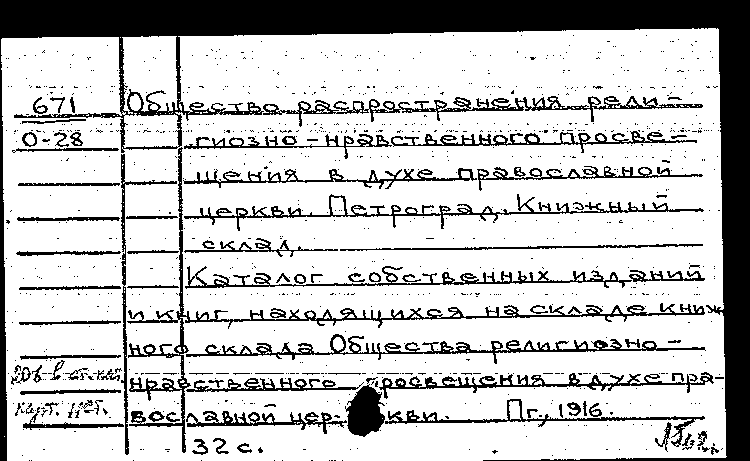 671 Общество распространения рели-
О-28 гиозно-нравственного просве-
щения в духе православной
церкви. Петроград. Книжный
склад.
Каталог собственных изданий
и книг, находящихся на складе книж
ного склада Общества религиозно-
нравственного просвещения в духе пра-
вославной цер- кви. Пг., 1916.
карт. нет.
32 с.